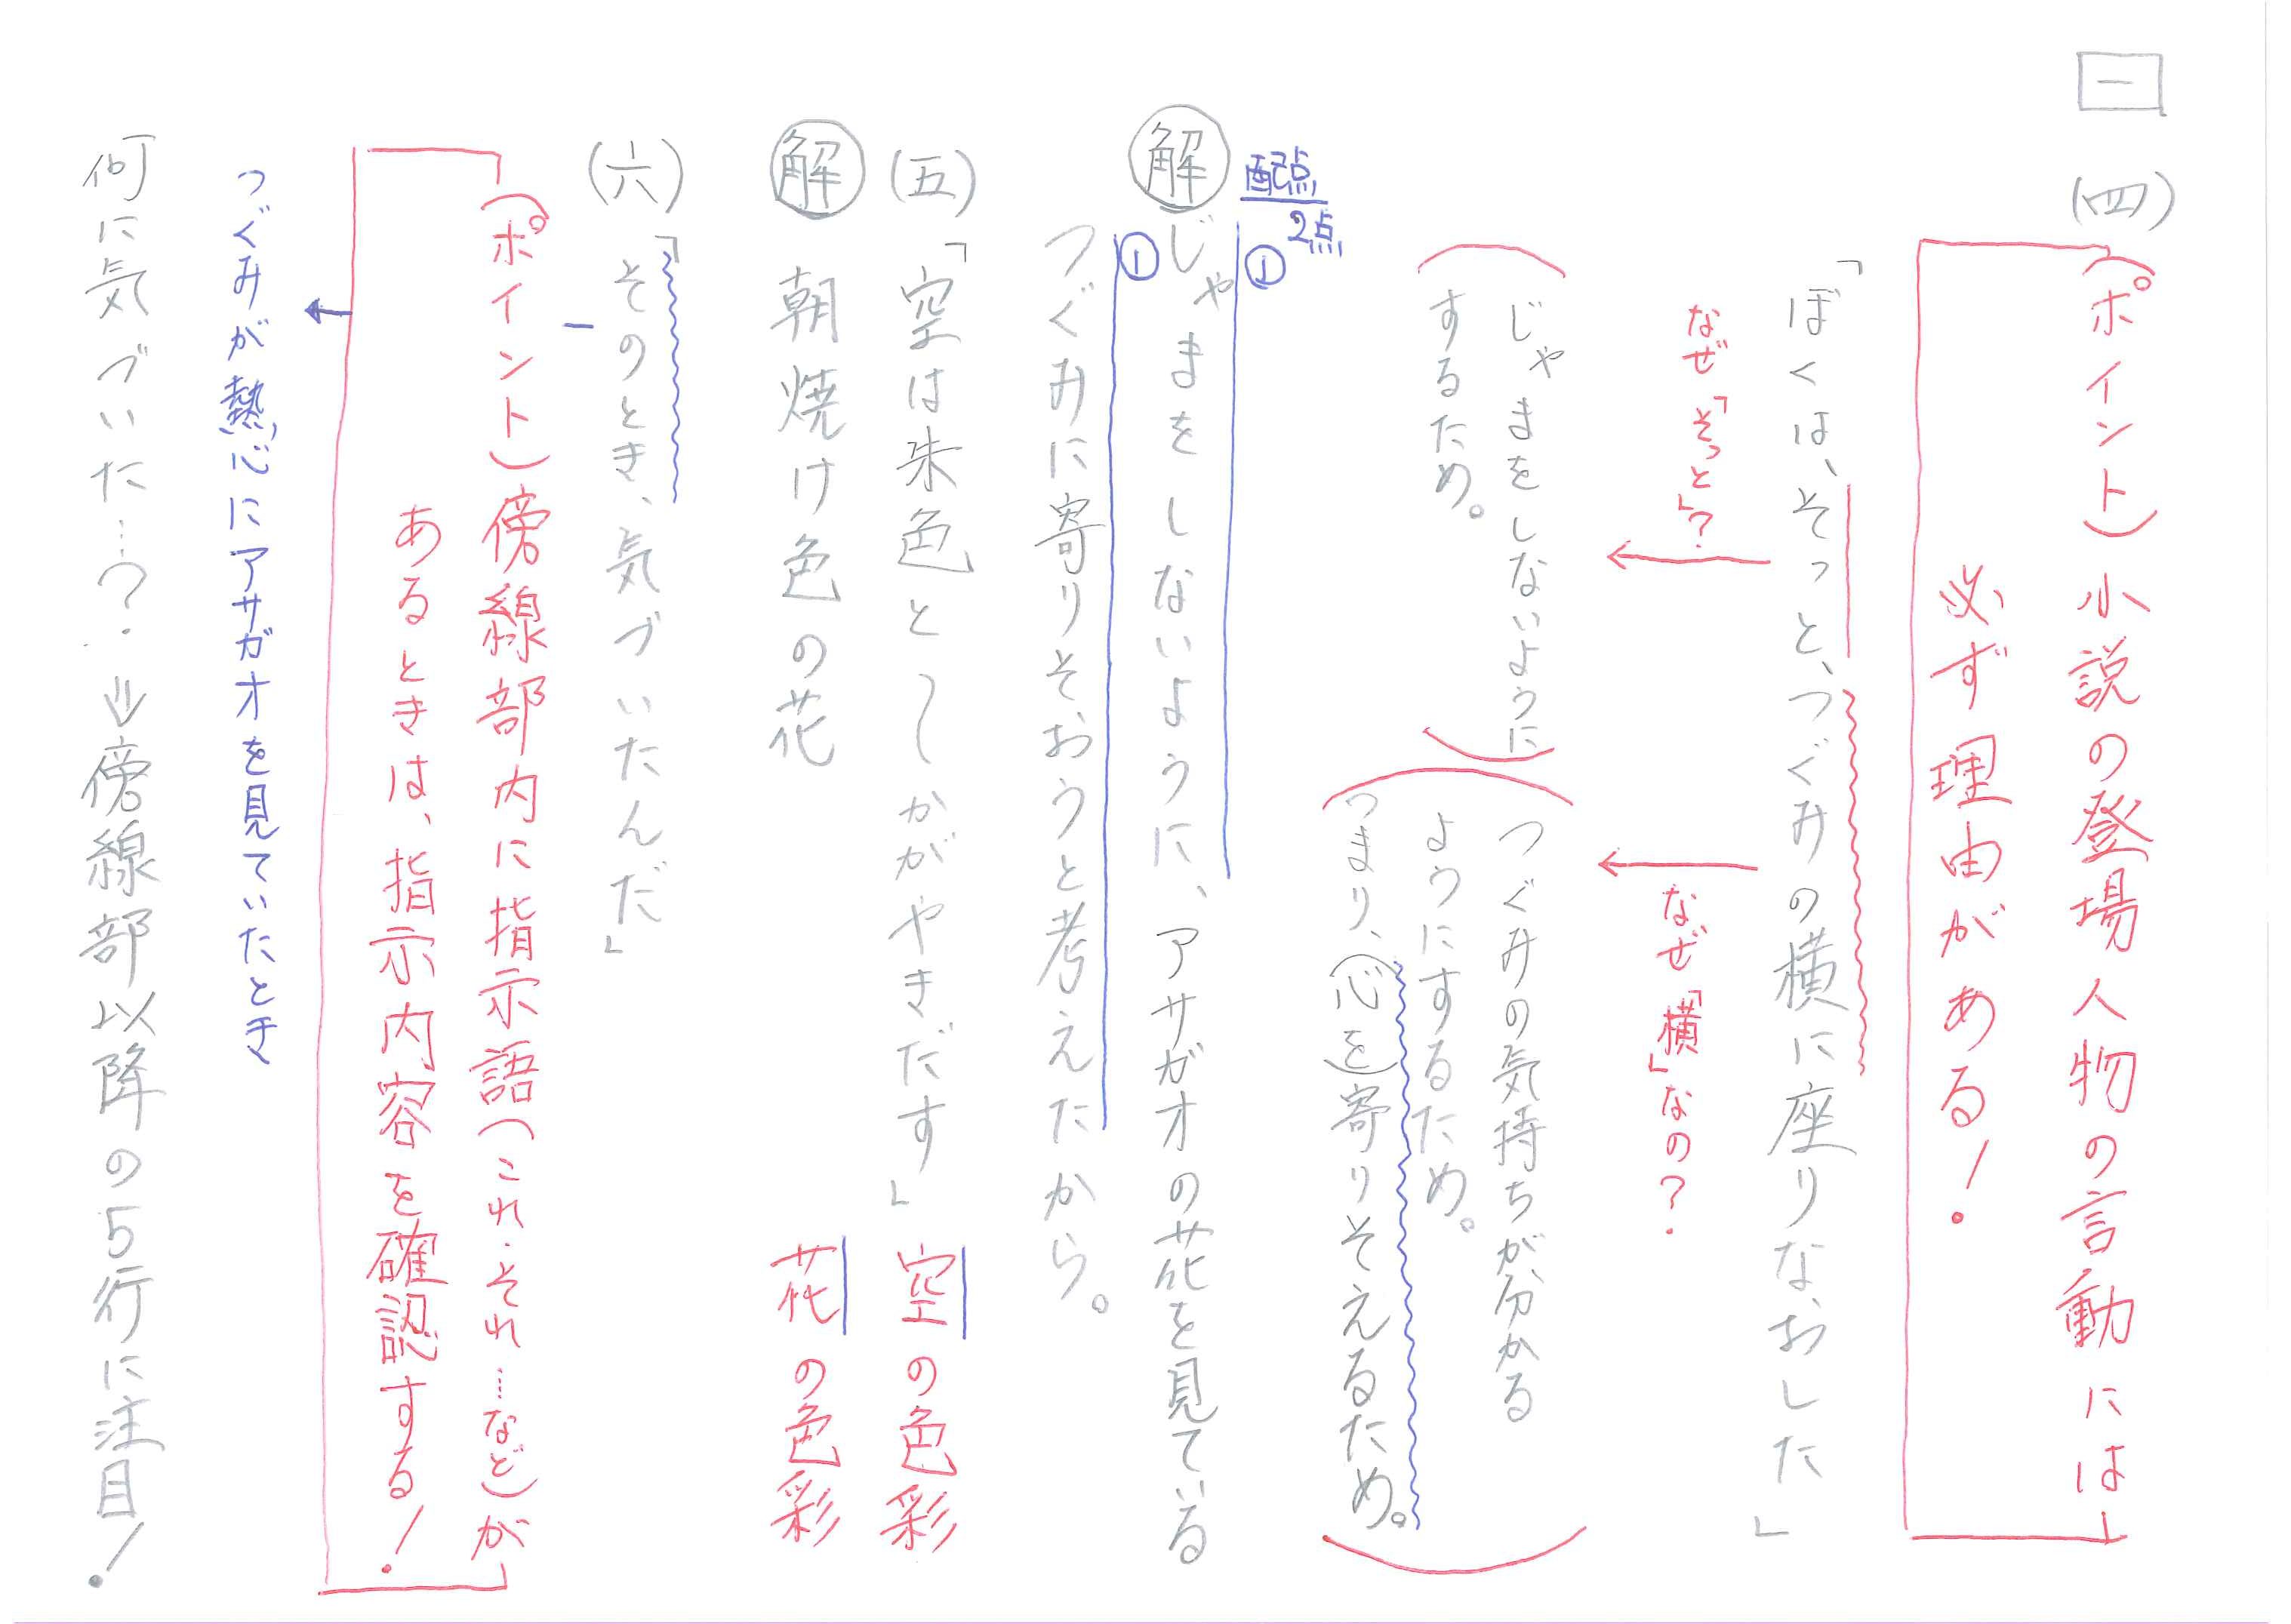 一
(四)
(ポイント)小説の登場人物の言動には
必ず理由がある!
「ぼくは、そっと、つぐみの横に座りなおした」
なぜ「そっと」?
なぜ「横」なの?
じゃまをしないように
するため。
つぐみの気持ちが分かる
ようにするため。
つまり、(心を)寄りそえるため。
配点
2点
①
解 じゃまをしないように、アサガオの花を見ている
①
つぐみに寄りそおうと考えたから。
(五)「空は朱色と〜かがやきだす」 空の色彩
解 朝焼け色の花 花の色彩
(六)「そのとき、気づいたんだ」
(ポイント)傍線部内に指示語(これ・それ…など)が
あるときは、指示内容を確認する!
つぐみが熱心にアサガオを見ていたとき
何に気づいた…?⇒傍線部以降の5行に注目!